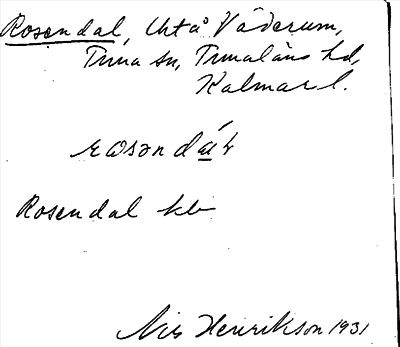 Rosendal, Urtå Väderum,
Tuna sn, Tunaläns hd,
Kalmar l.
Rosendal kb
Nils Henrikson 1931